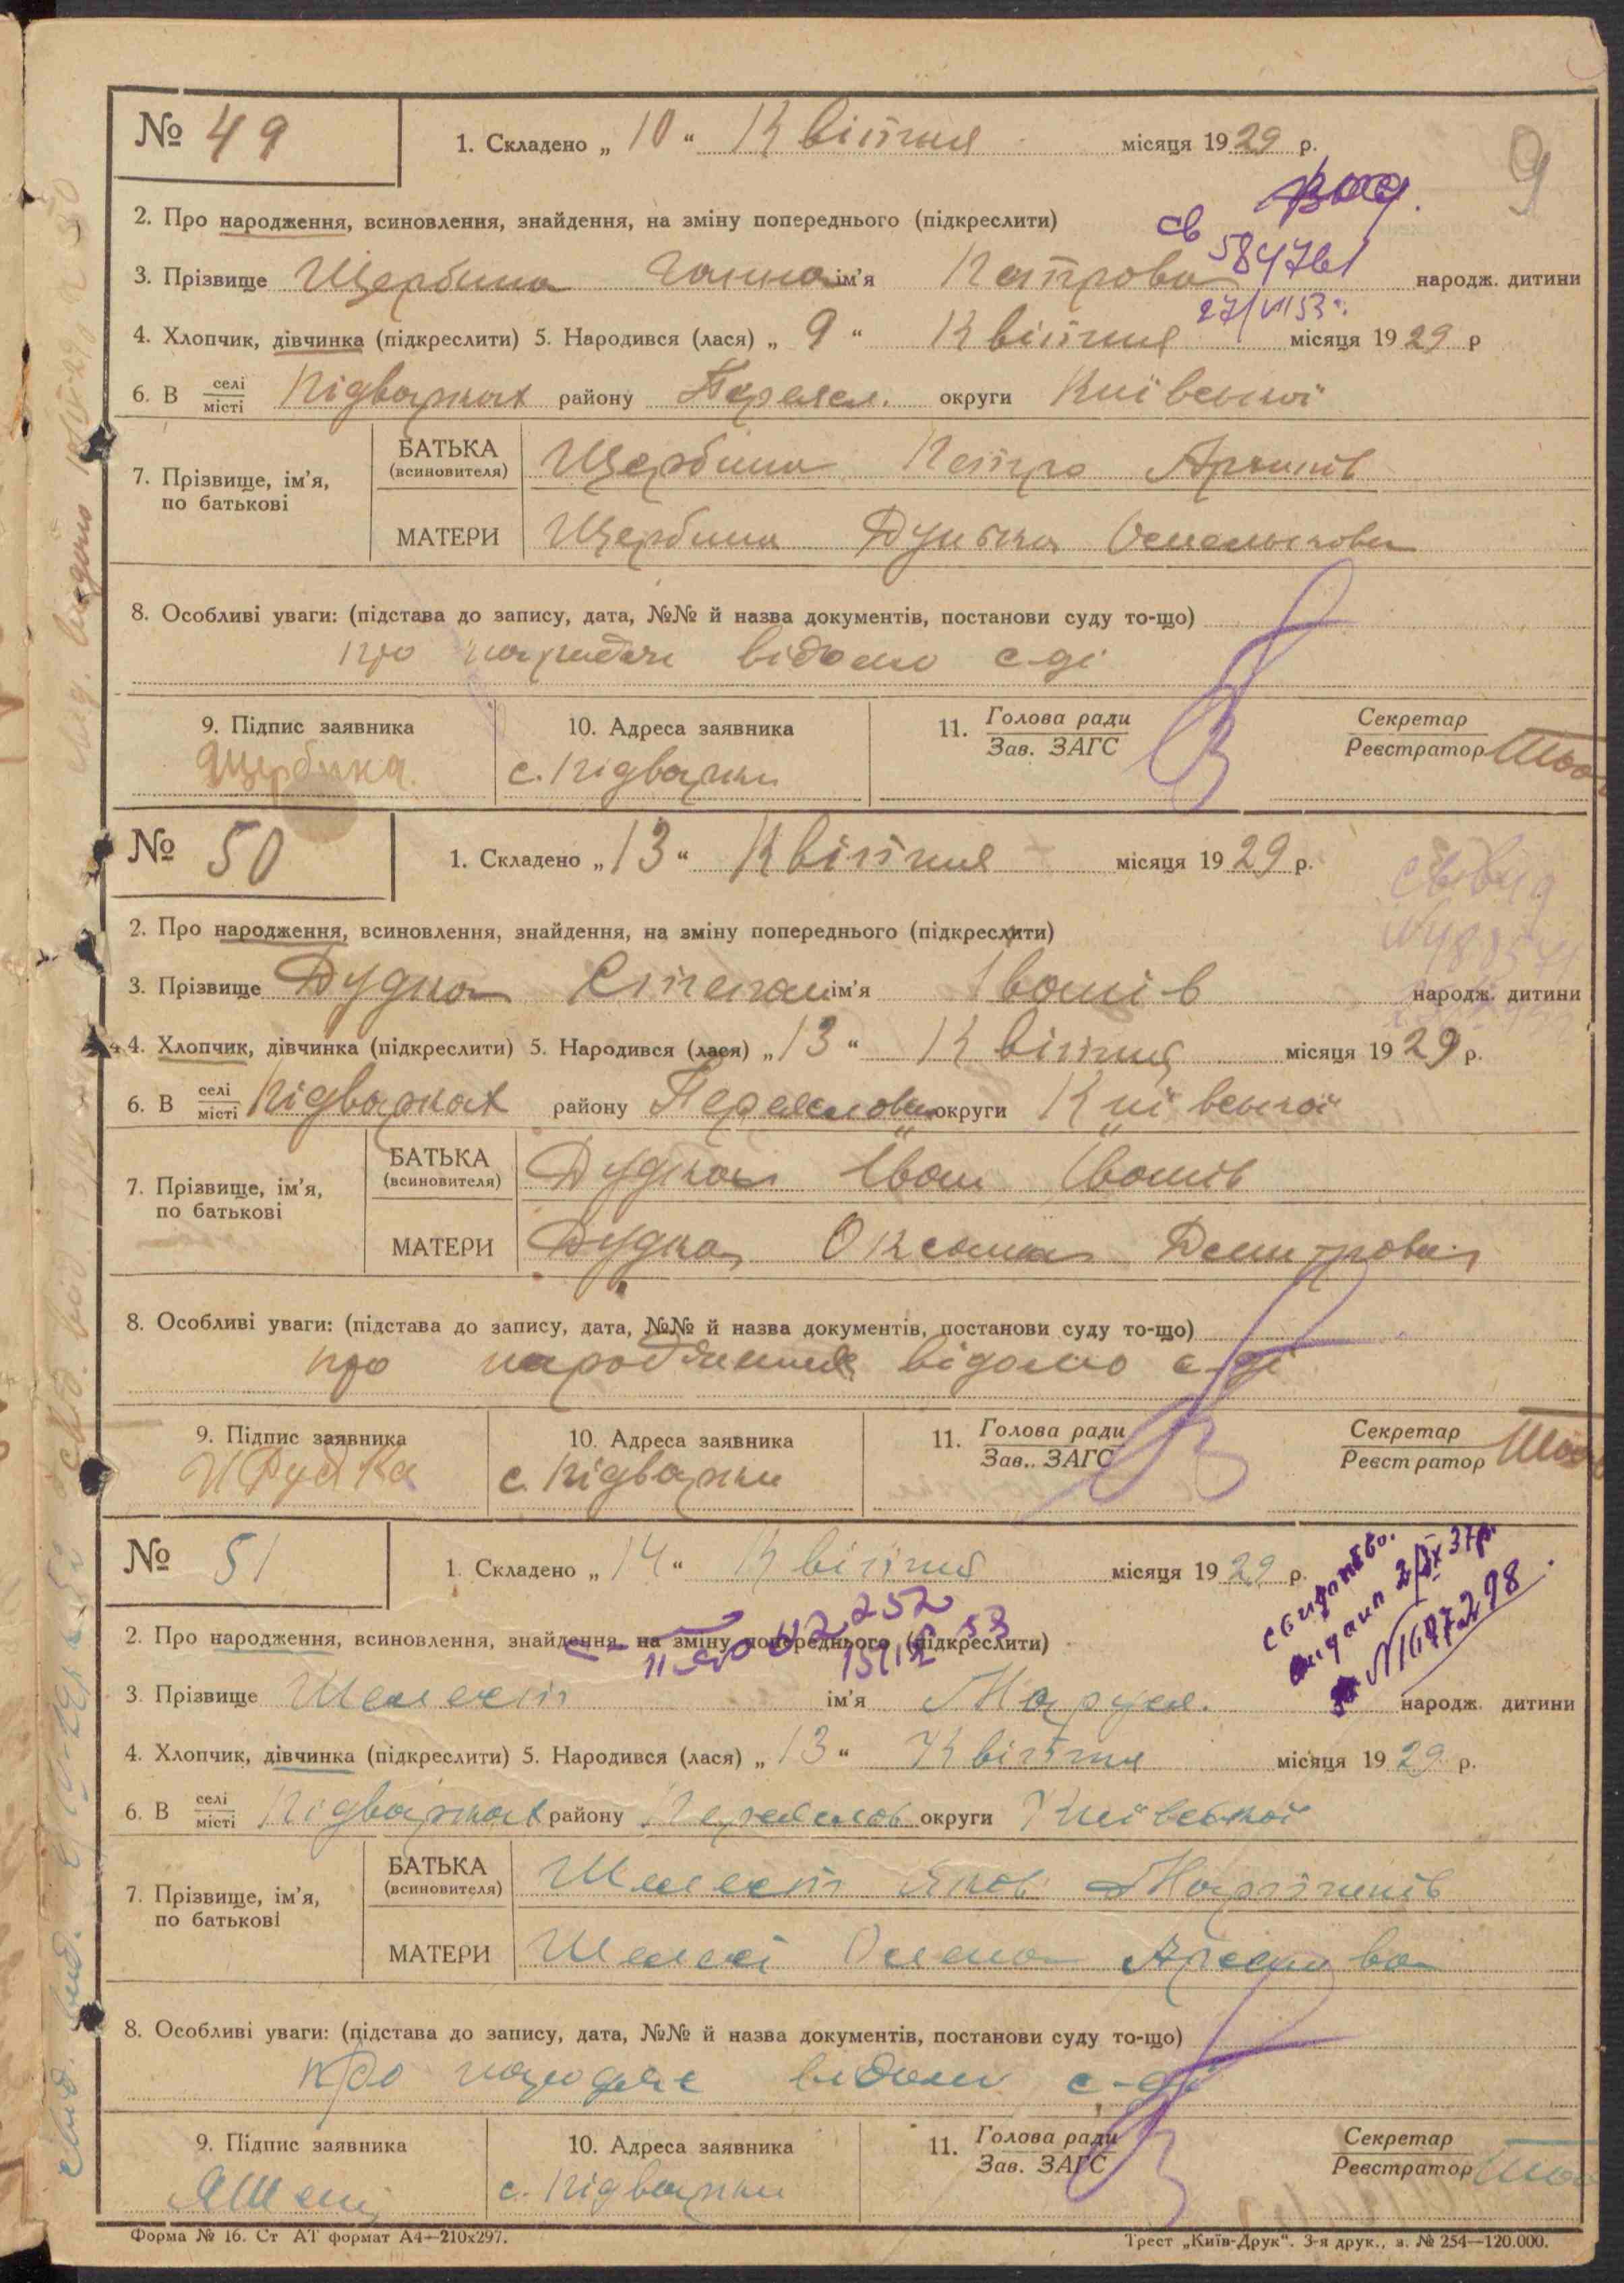 9
№ 49
1. Складено „10“ Квітня місяця 1929 р.
2. Про народження, всиновлення, знайдення, на зміну попереднього (підкреслити)
св 584761
27/VII 53 г.
3. Прізвище Щербина Ганна ім’я Петрова народж. дитини
4. Хлопчик, дівчинка (підкреслити) 5. Народився (лася) „9“ Квітня місяця 1929 р
6. В селі/місті Підварках району Переясл. округи Київської
7. Прізвище, ім’я, по батькові
БАТЬКА (всиновителя) Щербина Петро
МАТЕРИ Щербина Омелькова
8. Особливі уваги: (підстава до запису, дата, №№ й назва документів, постанови суду то-що)
про відомо с-ді
9. Підпис заявника
Щербина
10. Адреса заявника
с. Підварки
11. Голова ради / Зав. ЗАГС
Секретар / Реєстратор
№ 50
1. Складено „13“ Квітня місяця 1929 р.
2. Про народження, всиновлення, знайдення, на зміну попереднього (підкреслити)
3. Прізвище Дудка Степан ім’я Іванів народж. дитини
4. Хлопчик, дівчинка (підкреслити) 5. Народився (лася) „13“ Квітня місяця 1929 р.
6. В селі/місті Підварках району Переяслов округи Київської
7. Прізвище, ім’я, по батькові
БАТЬКА (всиновителя) Дудка Іван Іванів
МАТЕРИ Дудка Оксана Дмитрова
8. Особливі уваги: (підстава до запису, дата, №№ й назва документів, постанови суду то-що)
про народження відомо с-ді
9. Підпис заявника
И Дудка
10. Адреса заявника
с. Підварки
11. Голова ради / Зав. ЗАГС
Секретар / Реєстратор
№ 51
1. Складено „14“ Квітня місяця 1929 р.
2. Про народження, всиновлення, знайдення, на зміну попереднього (підкреслити)
3. Прізвище Шелест ім’я Маруся. народж. дитини
4. Хлопчик, дівчинка (підкреслити) 5. Народився (лася) „13“ Квітня місяця 1929 р.
6. В селі/місті Підварках району Переяслов округи Київської
7. Прізвище, ім’я, по батькові
БАТЬКА (всиновителя) Шелест Яков Мартинів
МАТЕРИ Шелест Олена
8. Особливі уваги: (підстава до запису, дата, №№ й назва документів, постанови суду то-що)
про відомо с-ді
9. Підпис заявника
10. Адреса заявника
с. Підварки
11. Голова ради / Зав. ЗАГС
Секретар / Реєстратор
Форма № 16. Ст АТ формат А4—210х297.
Трест „Київ-Друк“. 3-я друк., з. № 254—120.000.